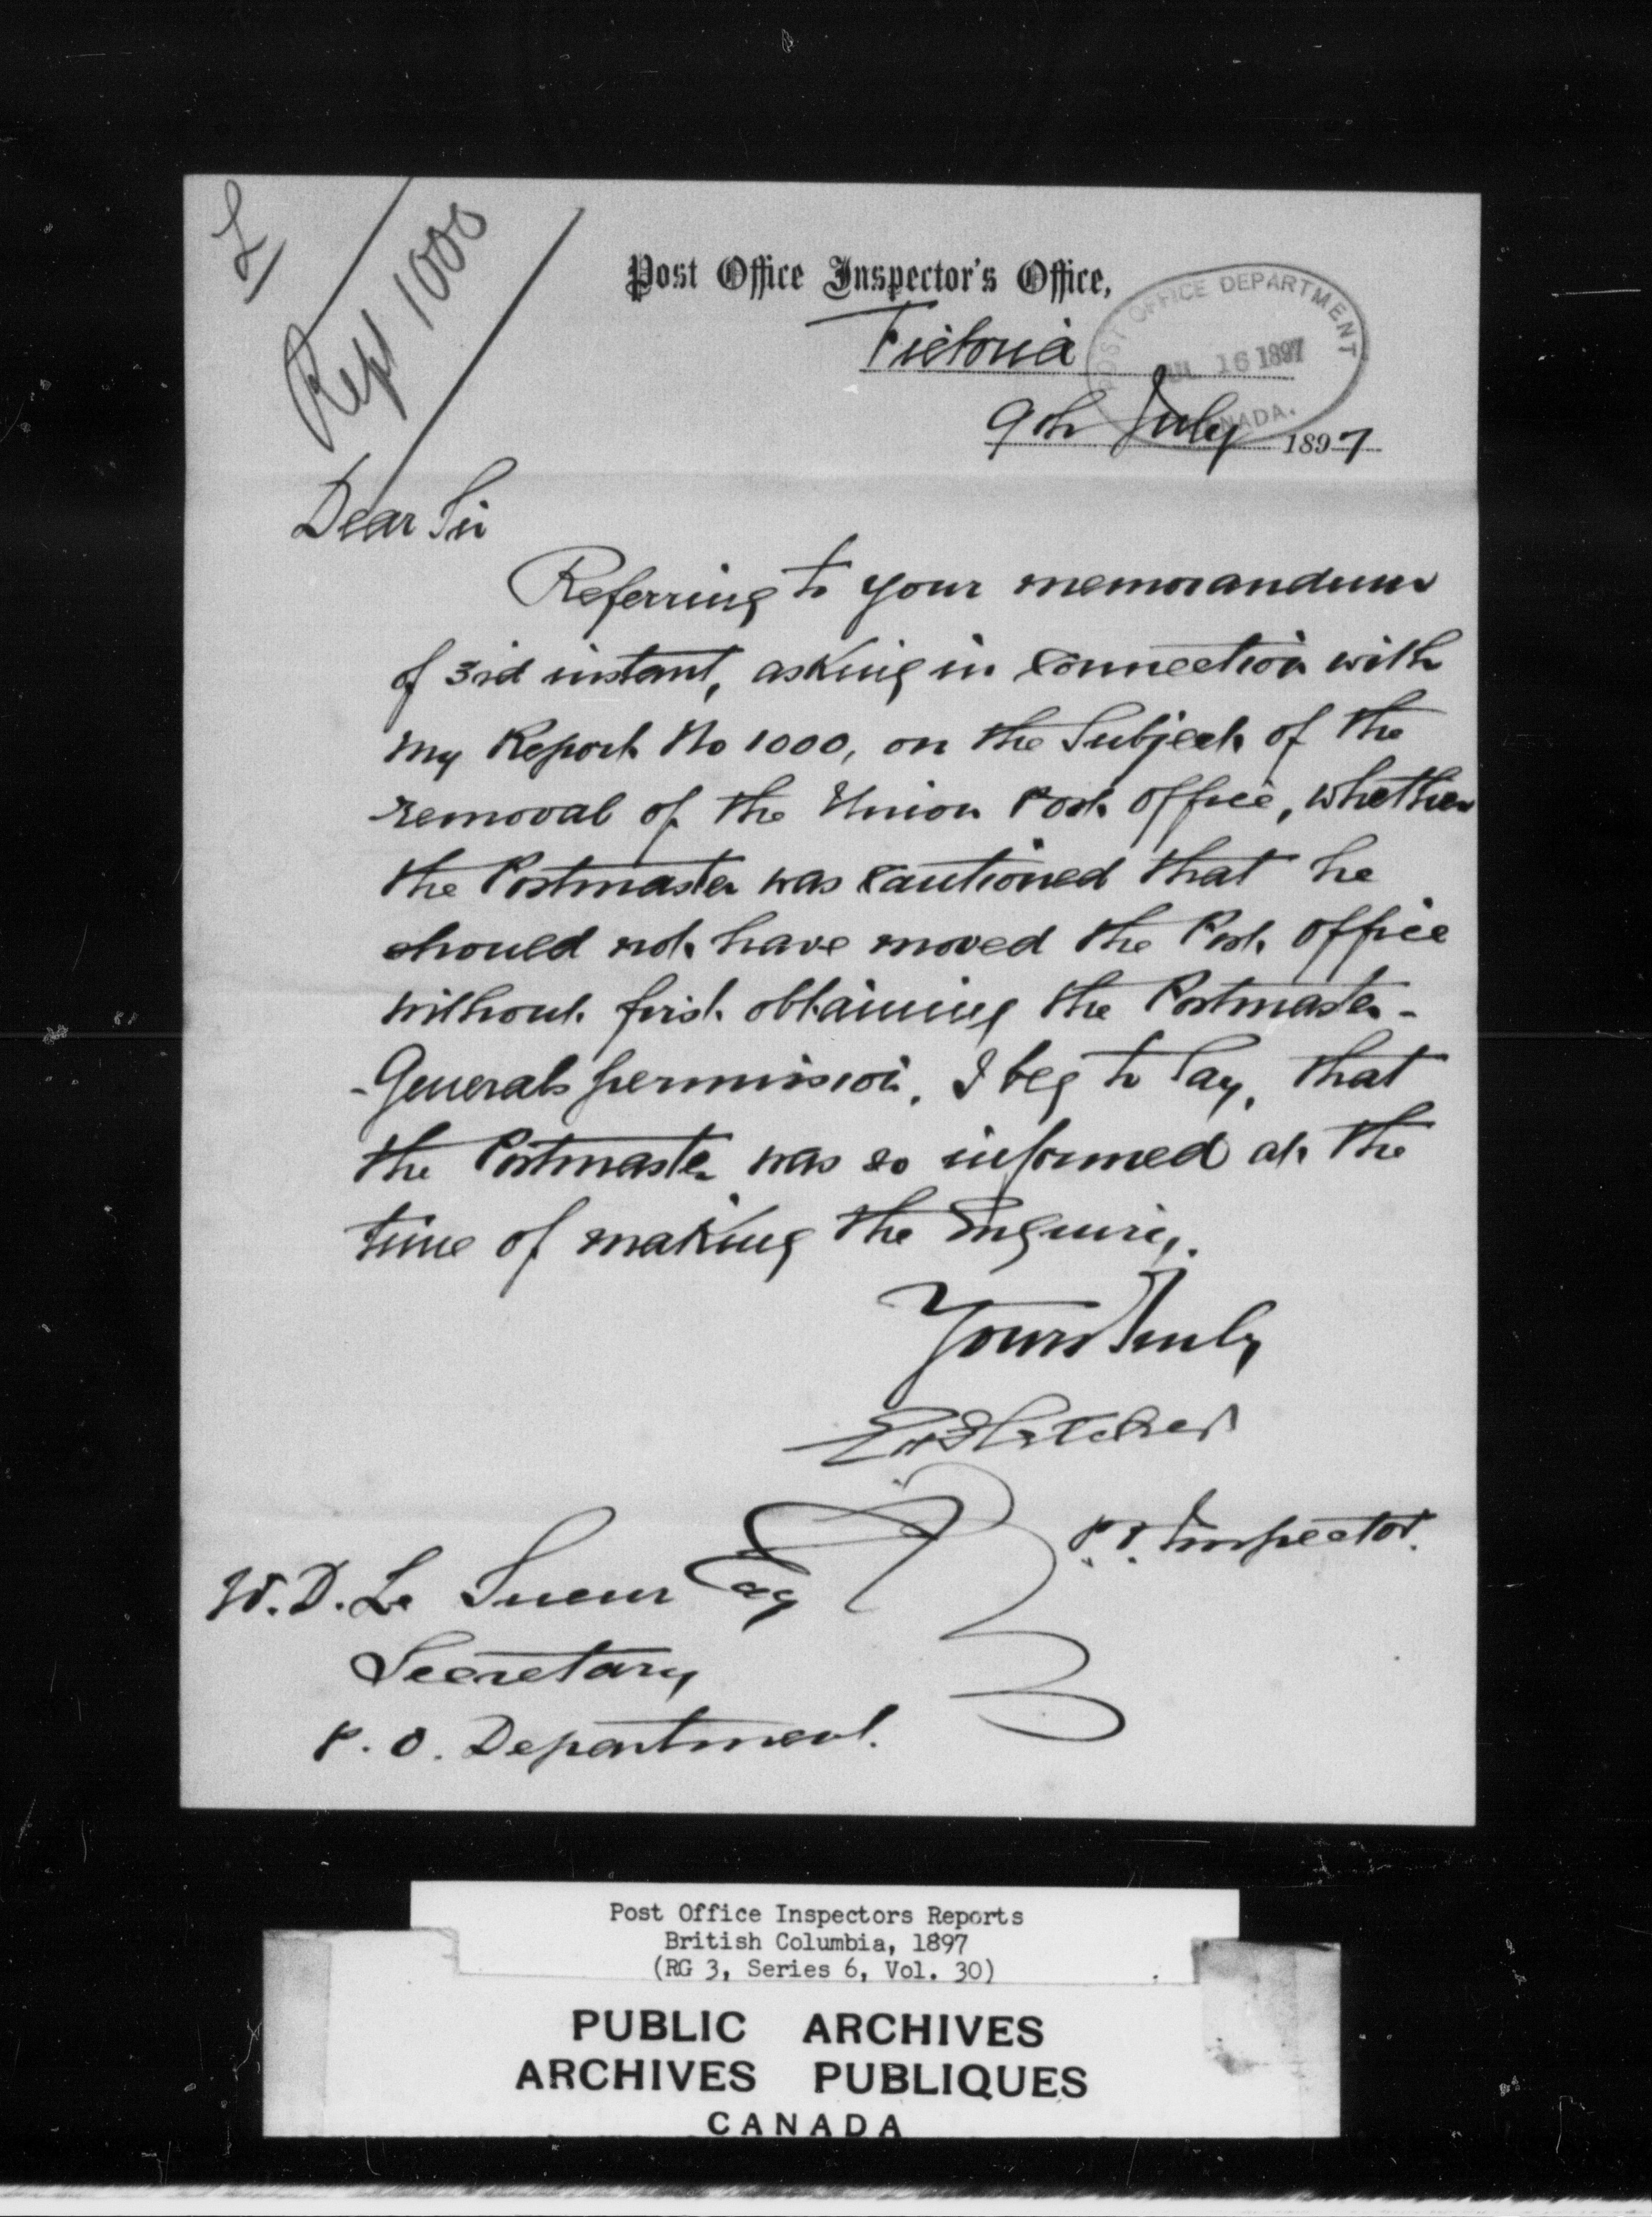 L
Rept 1000
Post Office Inspector's Office,
Victoria
POST OFFICE DEPARTMENT
JUL 16 1897
CANADA.
9th July 1897
Dear Sir
Referring to your memorandum
of 3rd instant, asking in connection with
my Report No 1000, on the Subject of the
removal of the Union Post Office, whether
the Postmaster was cautioned that he
should not have moved the Post Office
without first obtaining the Postmaster-
-Generals permission, I beg to say, that
the Postmaster was so informed at the
time of making the Enquiry.
Yours truly
E H Fletcher
P.O. Inspector.
W. D. Le Sueur Esq
Secretary
P. O. Department.
Post Office Inspectors Reports
British Columbia, 1897
(RG 3, Series 6, Vol. 30)
PUBLIC ARCHIVES
ARCHIVES PUBLIQUES
CANADA